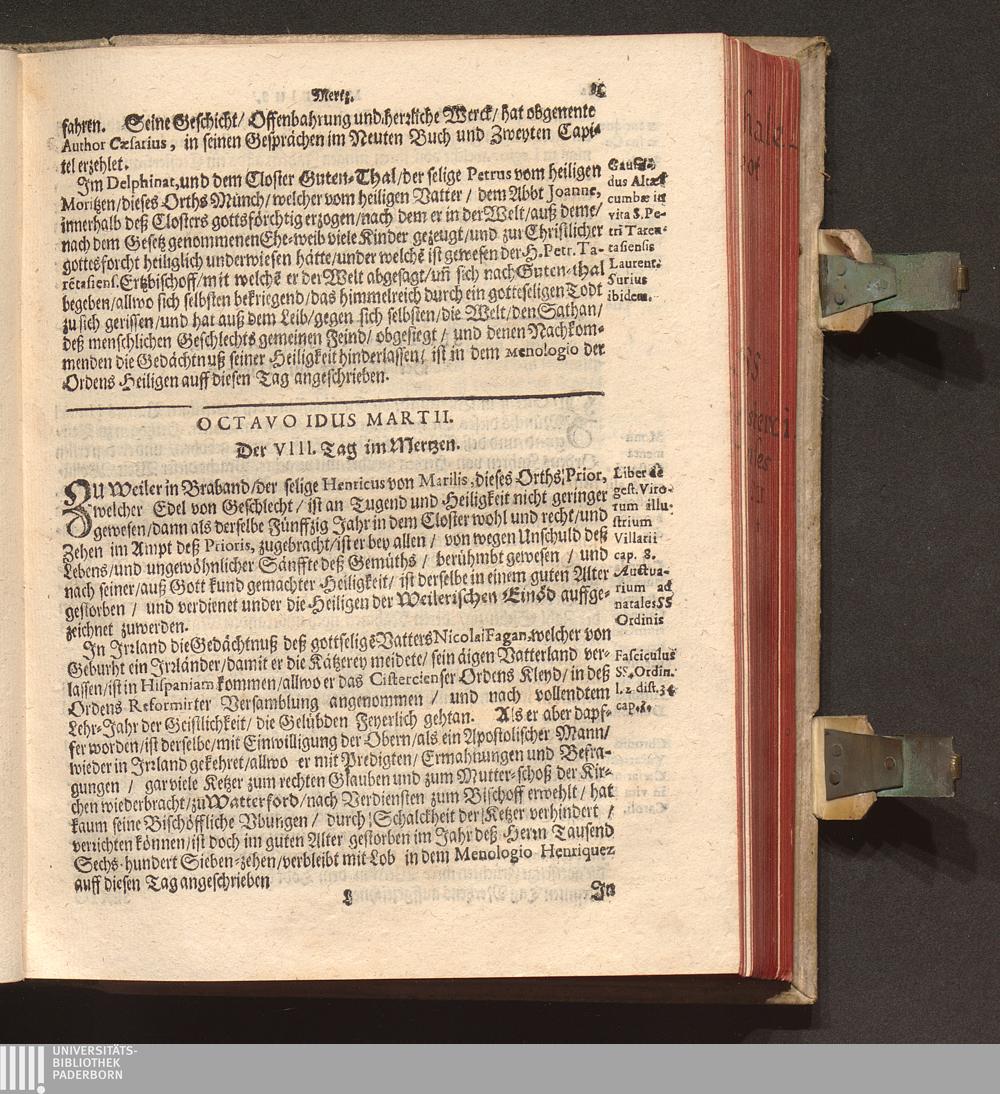 Mertz.
fahren. Seine Geschicht/ Offenbahrung und herzliche Werck/ hat obgenente
Author Cæsarius, in seinen Gesprächen im Neuten Buch und Zweyten Capi-
tel erzehlet.
Im Delphinat, und dem Closter Guten-Thal/ der selige Petrus vom heiligen
Moritzen/ dieses Orths Münch/ welcher vom heiligen Vatter/ dem Abbt Joanne,
innerhalb deß Closters gottsförchtig erzogen/ nach dem er in der Welt/ auß deme/
nach dem Gesetz genommenen Ehe-weib viele Kinder gezeugt/ und zur Christlicher
gottesforcht heiliglich underwiesen hätte/ under welchē ist gewesen der H. Petr. Ta-
rētasiens. Ertzbischoff/ mit welchē er der Welt abgesagt/ uñ sich nach Guten-thal
begeben/ allwo sich selbsten bekriegend/ das himmelreich durch ein gotteseligen Todt
zu sich gerissen/ und hat auß dem Leib/ gegen sich selbsten/ die Welt/ den Sathan/
deß menschlichen Geschlechts gemeinen Feind/ obgesiegt/ und denen Nachkom-
menden die Gedächtnuß seiner Heiligkeit hinderlassen/ ist in dem Menologio der
Ordens Heiligen auff diesen Tag angeschrieben.
Gaufri-
dus Altæ
cumbæ in
vita S. Pe-
tri Taren-
tasiensis
Laurent.
Surius
ibidem.
OCTAVO IDUS MARTII.
Der VIII. Tag im Mertzen.
ZU Weiler in Braband/ der selige Henricus von Marilis, dieses Orths Prior,
welcher Edel von Geschlecht/ ist an Tugend und Heiligkeit nicht geringer
gewesen/ dann als derselbe Fünffzig Jahr in dem Closter wohl und recht/ und
Zehen im Ampt deß Prioris, zugebracht/ ist er bey allen/ von wegen Unschuld deß
Lebens/ und ungewöhnlicher Sänffte deß Gemüths/ berühmbt gewesen/ und
nach seiner/ auß Gott kund gemachter Heiligkeit/ ist derselbe in einem guten Alter
gestorben/ und verdienet under die Heiligen der Weilerischen Einöd auffge-
zeichnet zuwerden.
Liber de
gest. Viro-
rum illu-
strium
Villarii
cap. 8.
Auctua-
rium ad
natales SS
Ordinis
In Irrland die Gedächtnuß deß gottseligē Vatters Nicolai Fagan, welcher von
Geburht ein Irrländer/ damit er die Kätzerey meidete/ sein äigen Vatterland ver-
lassen/ ist in Hispaniam kommen/ allwo er das Cistercienser Ordens Kleyd/ in deß
Ordens Reformirter Versamblung angenommen/ und nach vollendtem
Lehr-Jahr der Geistlichkeit/ die Gelübden Feyerlich gehtan. Als er aber dapf-
fer worden/ ist derselbe/ mit Einwilligung der Obern/ als ein Apostolischer Mann/
wieder in Irrland gekehret/ allwo er mit Predigten/ Ermahnungen und Befra-
gungen/ gar viele Ketzer zum rechten Glauben und zum Mutter-schoß der Kir-
chen wiederbracht/ zu Watterford/ nach Verdiensten zum Bischoff erwehlt/ hat
kaum seine Bischöffliche Vbungen/ durch Schalckheit der Ketzer verhindert/
verrichten können/ ist doch im guten Alter gestorben im Jahr deß Herrn Tausend
Sechs-hundert Sieben-zehen/ verbleibt mit Lob in dem Menologio Henriquez
auff diesen Tag angeschrieben
Fasciculus
SS. Ordin.
l. 2 dist. 34
cap. 8.
In
UNIVERSITÄTS-
BIBLIOTHEK
PADERBORN